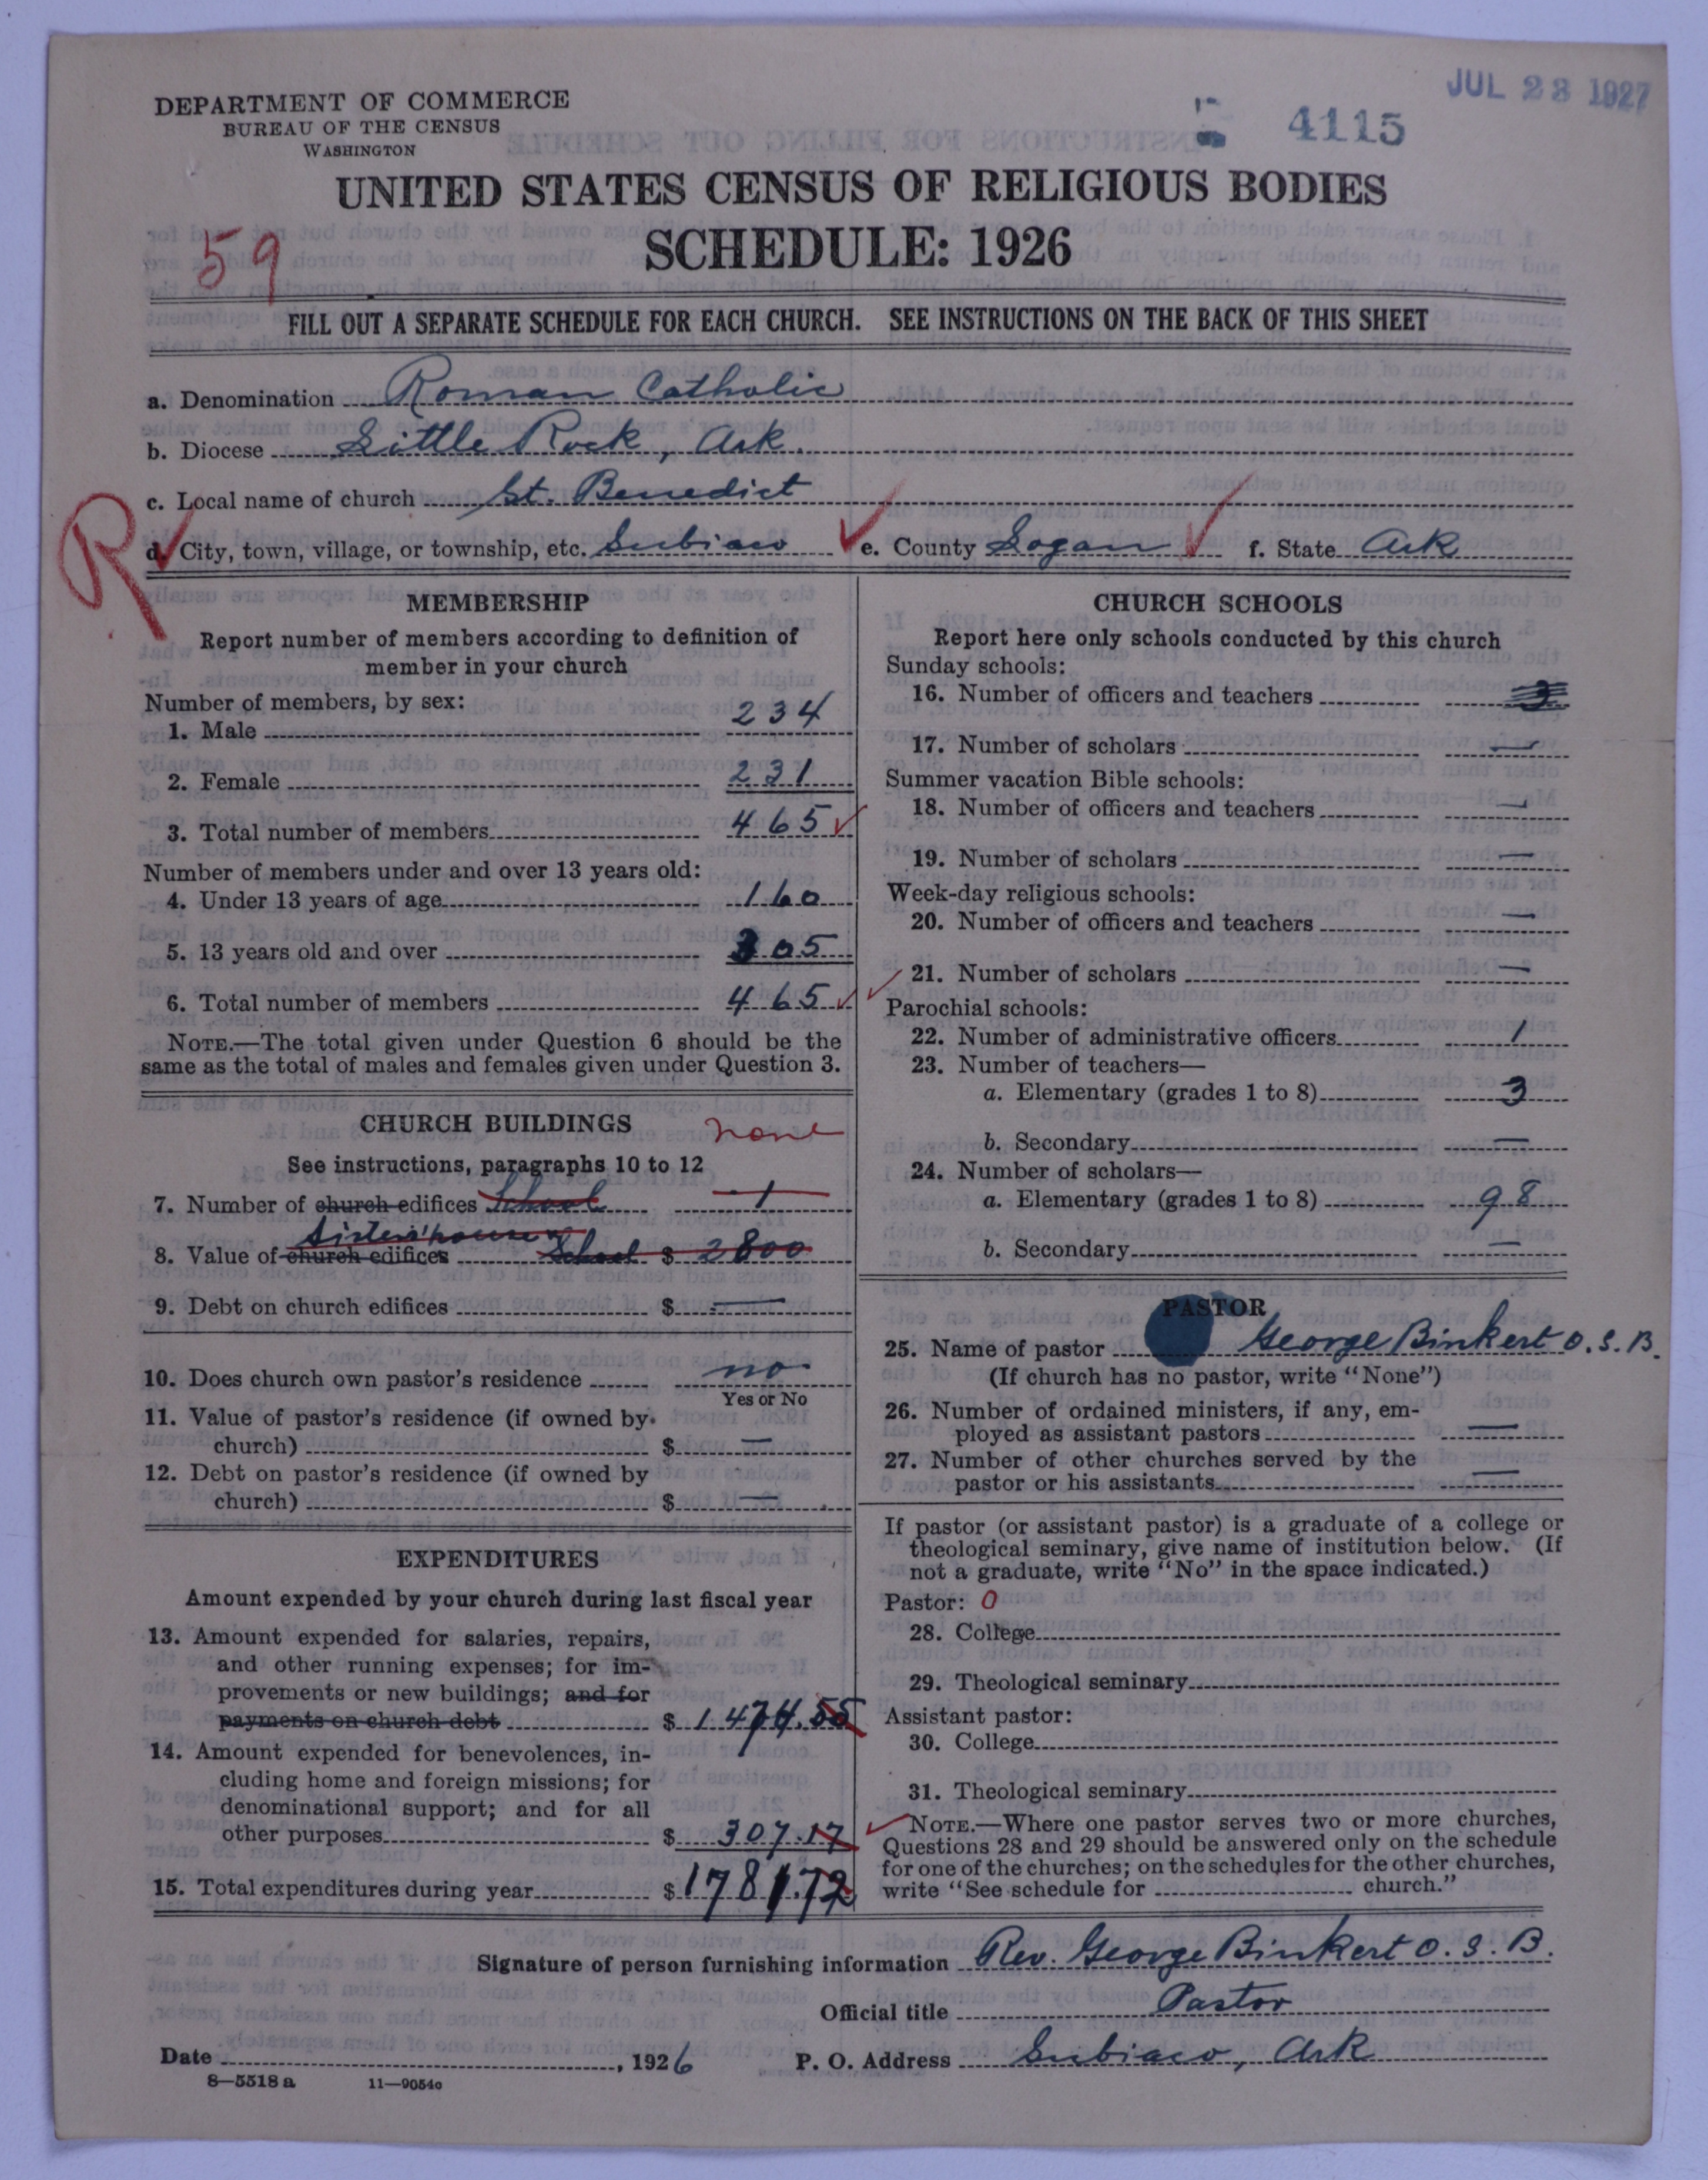 DEPARTMENT OF COMMERCE
BUREAU OF THE CENSUS
WASHINGTON
JUL 23 1927
4115
UNITED STATES CENSUS OF RELIGIOUS BODIES
59
SCHEDULE: 1926
FILL OUT A SEPARATE SCHEDULE FOR EACH CHURCH. SEE INSTRUCTIONS ON THE BACK OF THIS SHEET
a. Denomination Roman Catholic
b. Diocese Little Rock, Ark.
c. Local name of church St. Benedict
R
d. City, town, village, or township, etc. Subiaco e. County Logan f. State Ark
MEMBERSHIP
Report number of members according to definition of
member in your church
Number of members, by sex:
1. Male 234
2. Female 231
3. Total number of members 465
Number of members under and over 13 years old:
4. Under 13 years of age 160
5. 13 years old and over 305
6. Total number of members 465
NOTE.—The total given under Question 6 should be the
same as the total of males and females given under Question 3.
CHURCH BUILDINGS none
See instructions, paragraphs 10 to 12
7. Number of church edifices School 1
Sisters' house
8. Value of church edifices School $ 2800
9. Debt on church edifices $ —
10. Does church own pastor's residence no
Yes or No
11. Value of pastor's residence (if owned by
church) $ —
12. Debt on pastor's residence (if owned by
church) $ —
EXPENDITURES
Amount expended by your church during last fiscal year
13. Amount expended for salaries, repairs,
and other running expenses; for im-
provements or new buildings; and for
payments on church debt $ 1474.55
14. Amount expended for benevolences, in-
cluding home and foreign missions; for
denominational support; and for all
other purposes $ 307.17
15. Total expenditures during year $ 1781.72
CHURCH SCHOOLS
Report here only schools conducted by this church
Sunday schools:
16. Number of officers and teachers 3
17. Number of scholars —
Summer vacation Bible schools:
18. Number of officers and teachers —
19. Number of scholars —
Week-day religious schools:
20. Number of officers and teachers —
21. Number of scholars —
Parochial schools:
22. Number of administrative officers 1
23. Number of teachers—
a. Elementary (grades 1 to 8) 3
b. Secondary —
24. Number of scholars—
a. Elementary (grades 1 to 8) 98
b. Secondary —
PASTOR
25. Name of pastor George Binkert O.S.B.
(If church has no pastor, write "None")
26. Number of ordained ministers, if any, em-
ployed as assistant pastors —
27. Number of other churches served by the
pastor or his assistants —
If pastor (or assistant pastor) is a graduate of a college or
theological seminary, give name of institution below. (If
not a graduate, write "No" in the space indicated.)
Pastor: 0
28. College
29. Theological seminary
Assistant pastor:
30. College
31. Theological seminary
NOTE.—Where one pastor serves two or more churches,
Questions 28 and 29 should be answered only on the schedule
for one of the churches; on the schedules for the other churches,
write "See schedule for church."
Signature of person furnishing information Rev. George Binkert O.S.B.
Official title Pastor
Date , 1926 P. O. Address Subiaco, Ark
8—5518 a 11—9054c